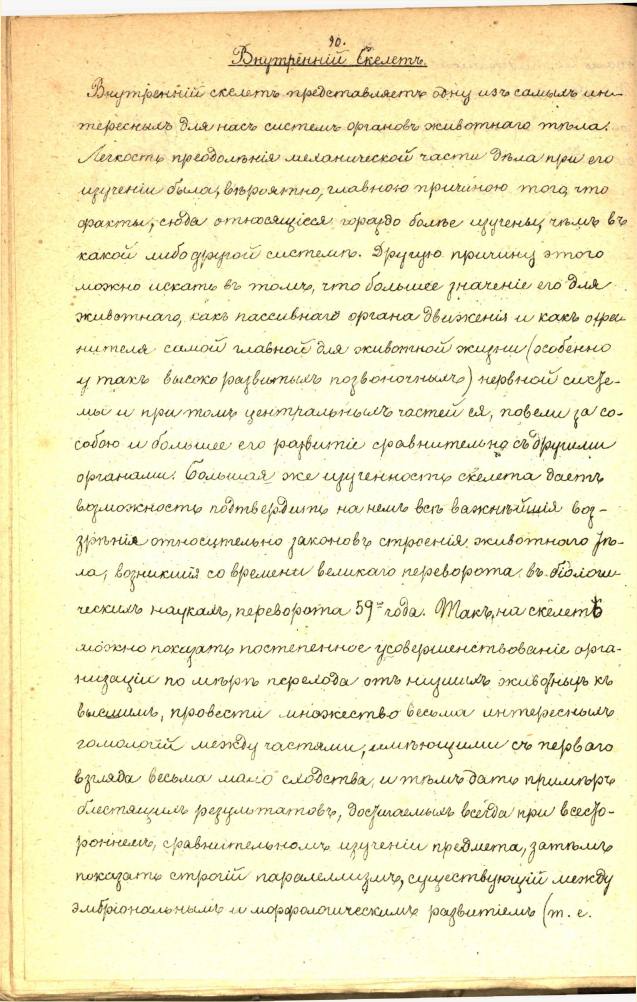 90.
Внутренній Скелетъ.
Внутренній скелетъ представляетъ одну изъ самыхъ ин-
тересныхъ для насъ системъ органовъ животнаго тѣла.
Легкость преодолѣнія механической части дѣла при его
изученіи была, вѣроятно, главною причиною того, что
факты, сюда относящіеся гораздо болѣе изучены, чѣмъ въ
какой либо другой системѣ. Другую причину этого
можно искать въ томъ, что большее значеніе его для
животнаго, какъ пассивнаго органа движенія и какъ охра-
нителя самой главной для животной жизни (особенно
у такъ высоко развитыхъ позвоночныхъ) нервной систе-
мы и при томъ центральныхъ частей ея, повели за со-
собою и большее его развитіе сравнительно съ другими
органами. Большая же изученность скелета даетъ
возможность подтвердить на немъ всѣ важнѣйшія воз-
зрѣнія относительно законовъ строенія животнаго тѣ-
ла, возникшія со времени великаго переворота въ біологи-
ческихъ наукахъ, переворота 59-го года. Такъ, на скелетѣ
можно показать постепенное усовершенствованіе орга-
низаціи по мѣрѣ перехода отъ низшихъ животныхъ къ
высшимъ, провести множество весьма интересныхъ
гомологій между частями, имѣющими съ перваго
взгляда весьма мало сходства, и тѣмъ дать примѣръ
блестящихъ результатовъ, достигаемыхъ всегда при всесто-
роннемъ, сравнительномъ изученіи предмета, затѣмъ
показать строгій паралеллизмъ, существующій между
эмбріональнымъ и морфологическимъ развитіемъ (т. е.